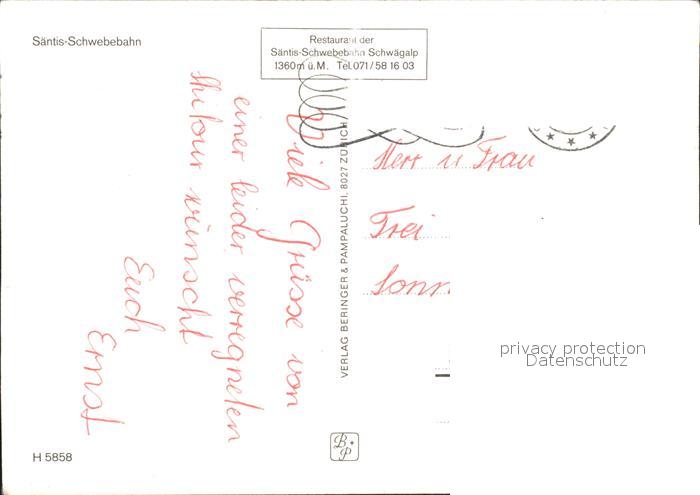 Säntis-Schwebebahn
Restaurant der
Säntis-Schwebebahn Schwägalp
1360m ü.M. Tel.071/58 16 03
Viele Grüsse von
einer leider verregneten
Skitour wünscht
Euch
Ernst
VERLAG BERINGER & PAMPALUCHI, 8027 ZÜRICH
Herr u Frau
Frei
Sonn
privacy protection
Datenschutz
H 5858
B+P